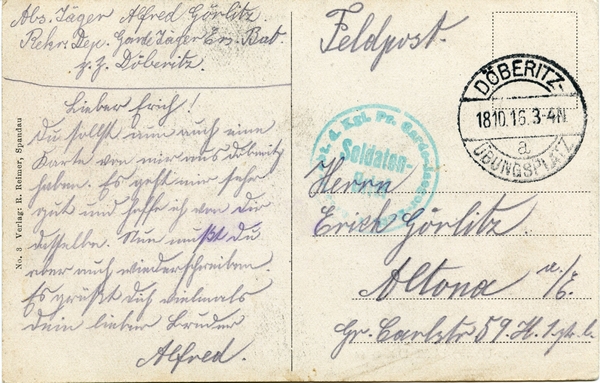 Abs. Jäger Alfred Görlitz
Rekr. Dep. Garde Jäger Ers. Bat.
z. Z. Döberitz.
Feldpost.
DÖBERITZ-
18.10.16. 3-4N
a
ÜBUNGSPLATZ
Soldaten-
Lieber Erich!
Du sollst nun auch eine
Karte von mir aus Döberitz
haben. Es geht mir sehr
gut und hoffe ich von dir
dasselbe. Nun mußt du
aber auch wiederschreiben.
Es grüßt dich vielmals
dein lieber Bruder
Alfred.
Herrn
Erich Görlitz
Altona a./E.
Gr. Carlstr 59. H.
No. 3 Verlag: R. Reimer, Spandau